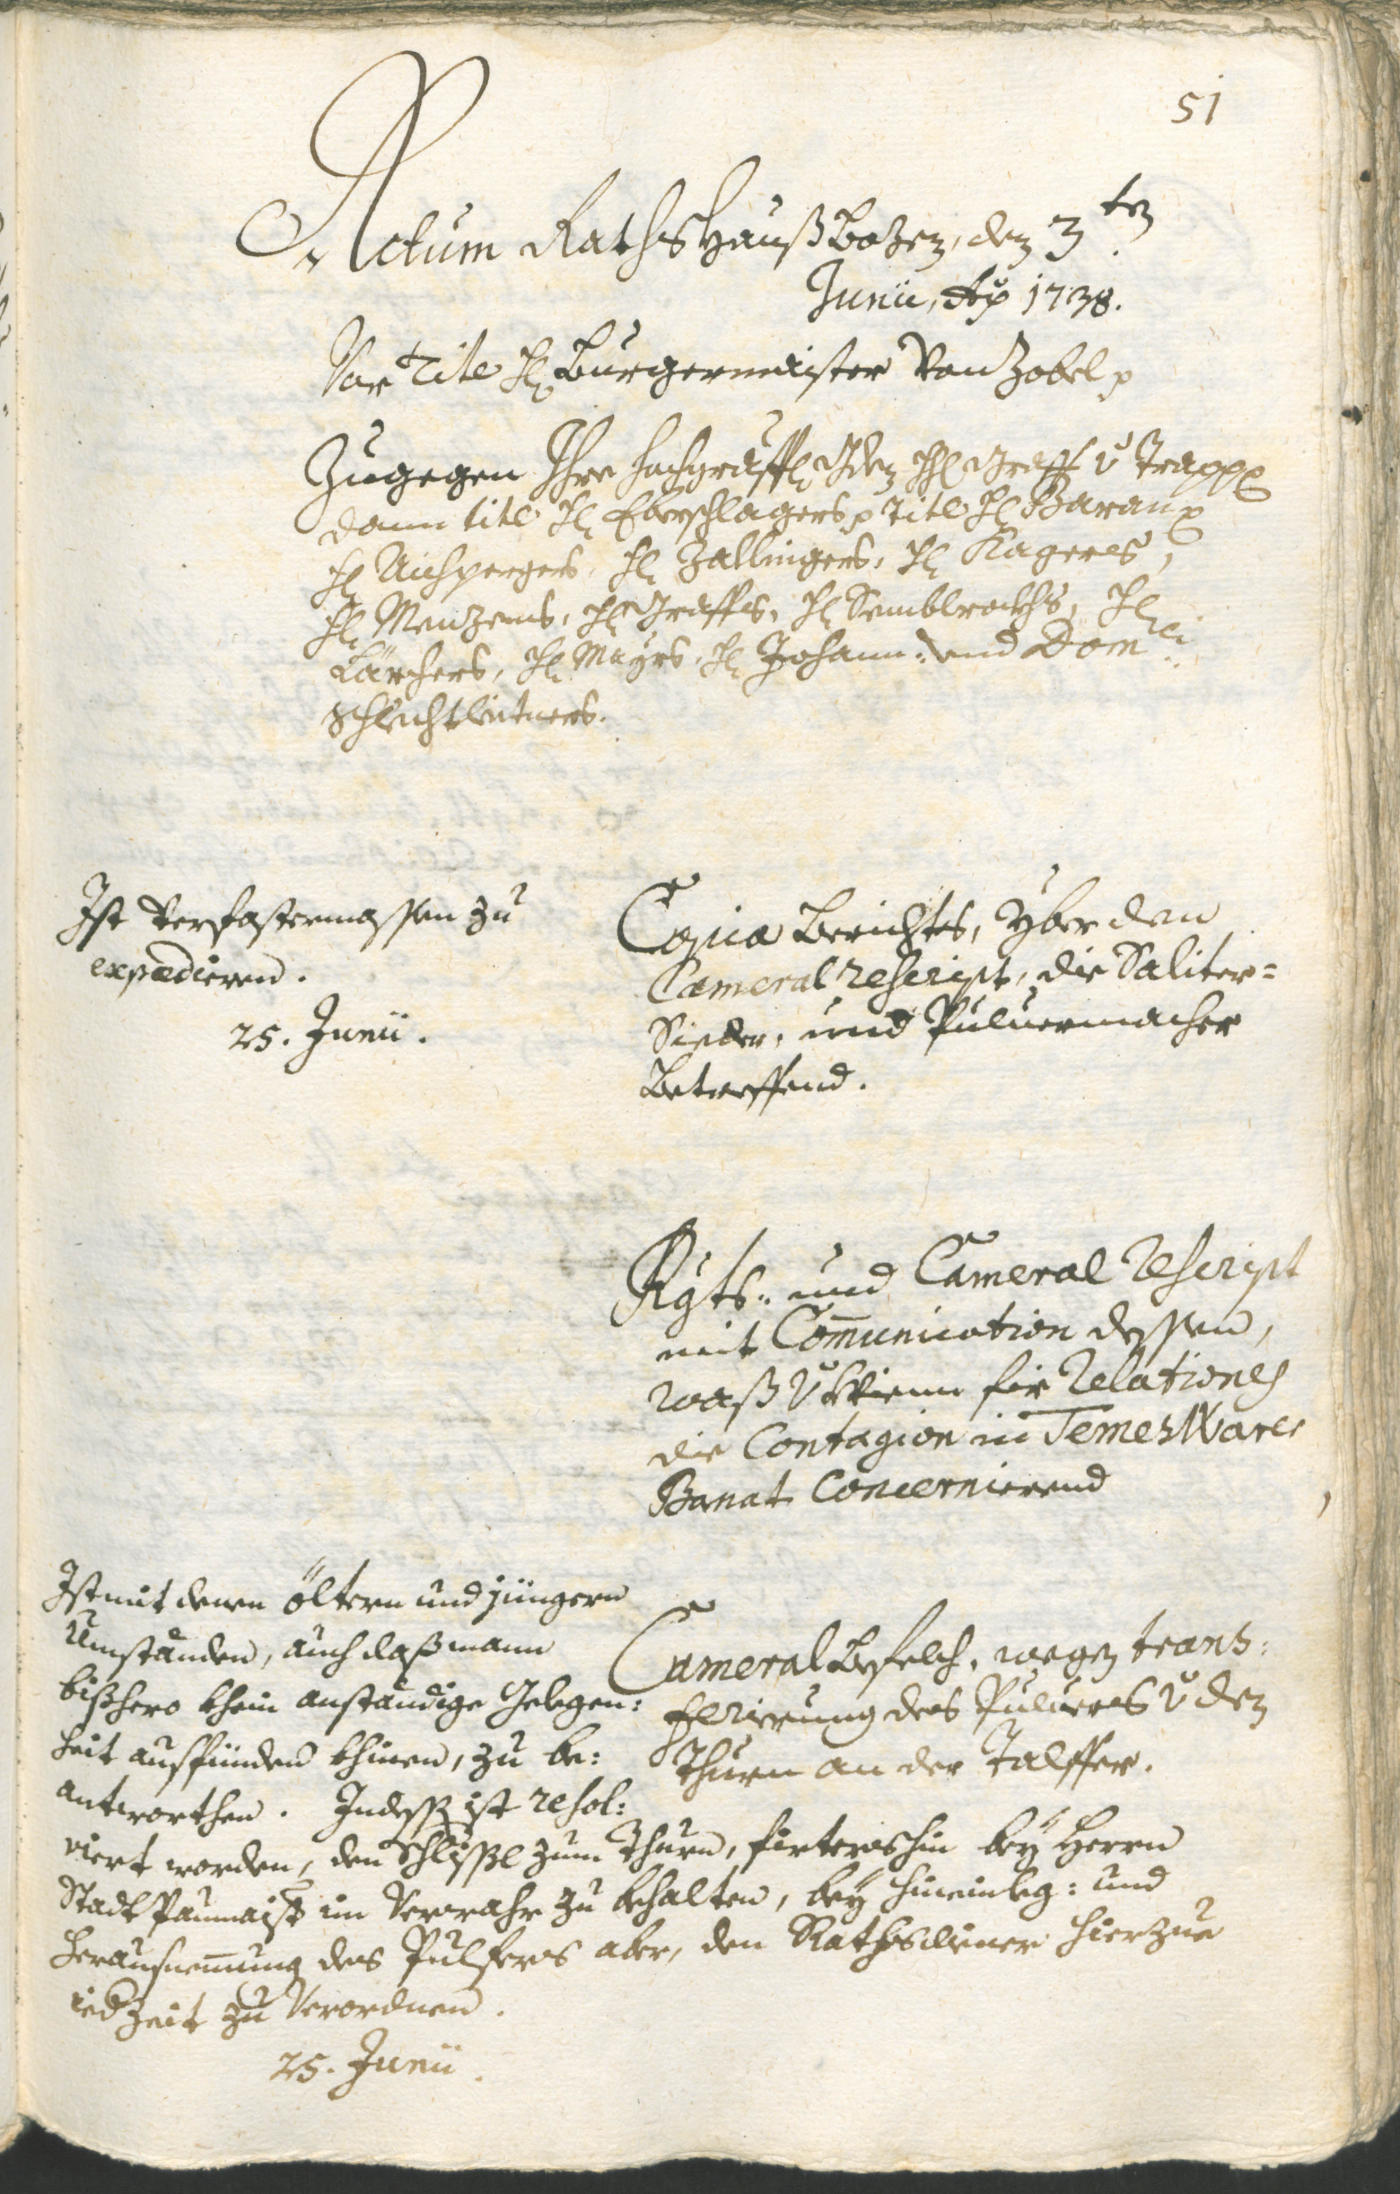 51
Actum Rathshauß Bozen, den 3.ten
Junii, Ao 1738.
Vor Titl H. Burgermaister Von Zobel p
Zugegen Ihro hochgräffl. Gdn H. Graff v Trapp p
dann titl H. Eberschlagers p Titl H. Baran p
H. Aichpergers, H. Zallingers, H. Kagerers,
H. Menzens, H. Graffs, H. Semblrockhs, H.
Lärchers, H. Mayrs, H. Johann: und Domci
Schlechtleitners.
Ist Verfastermassen zu
expedieren.
25. Junii.
Copia Berichts, yber den
Cameral rescript, die Saliter=
Sieder, und Pulvermacher
Betreffend.
Rgts: und Cameral rescript
mit Communication dessen,
waß v Wienn für relationes
die Contagion in TemesWarer
Banat Concernierend
Ist mit denen öltern und jüngern
Umständen, auch daß mann
bißhero khein anständige Gelegen:
heit ausfünden khinen, zu be:
antworthen. Indeßen ist resol:
viert worden, den Schlißl zum Thurn, firterohin bey Herrn
Stadt Paumaister im Verwahr zu behalten, bey hineinleg: und
heraußnemung des Pulfers aber, den Rathsdiener hierzue
ied Zeit zu Verordnen.
25. Junii.
Cameral Befelch, wegen trans:
ferierung des Pulvers v den
Thurn an der Talffer.